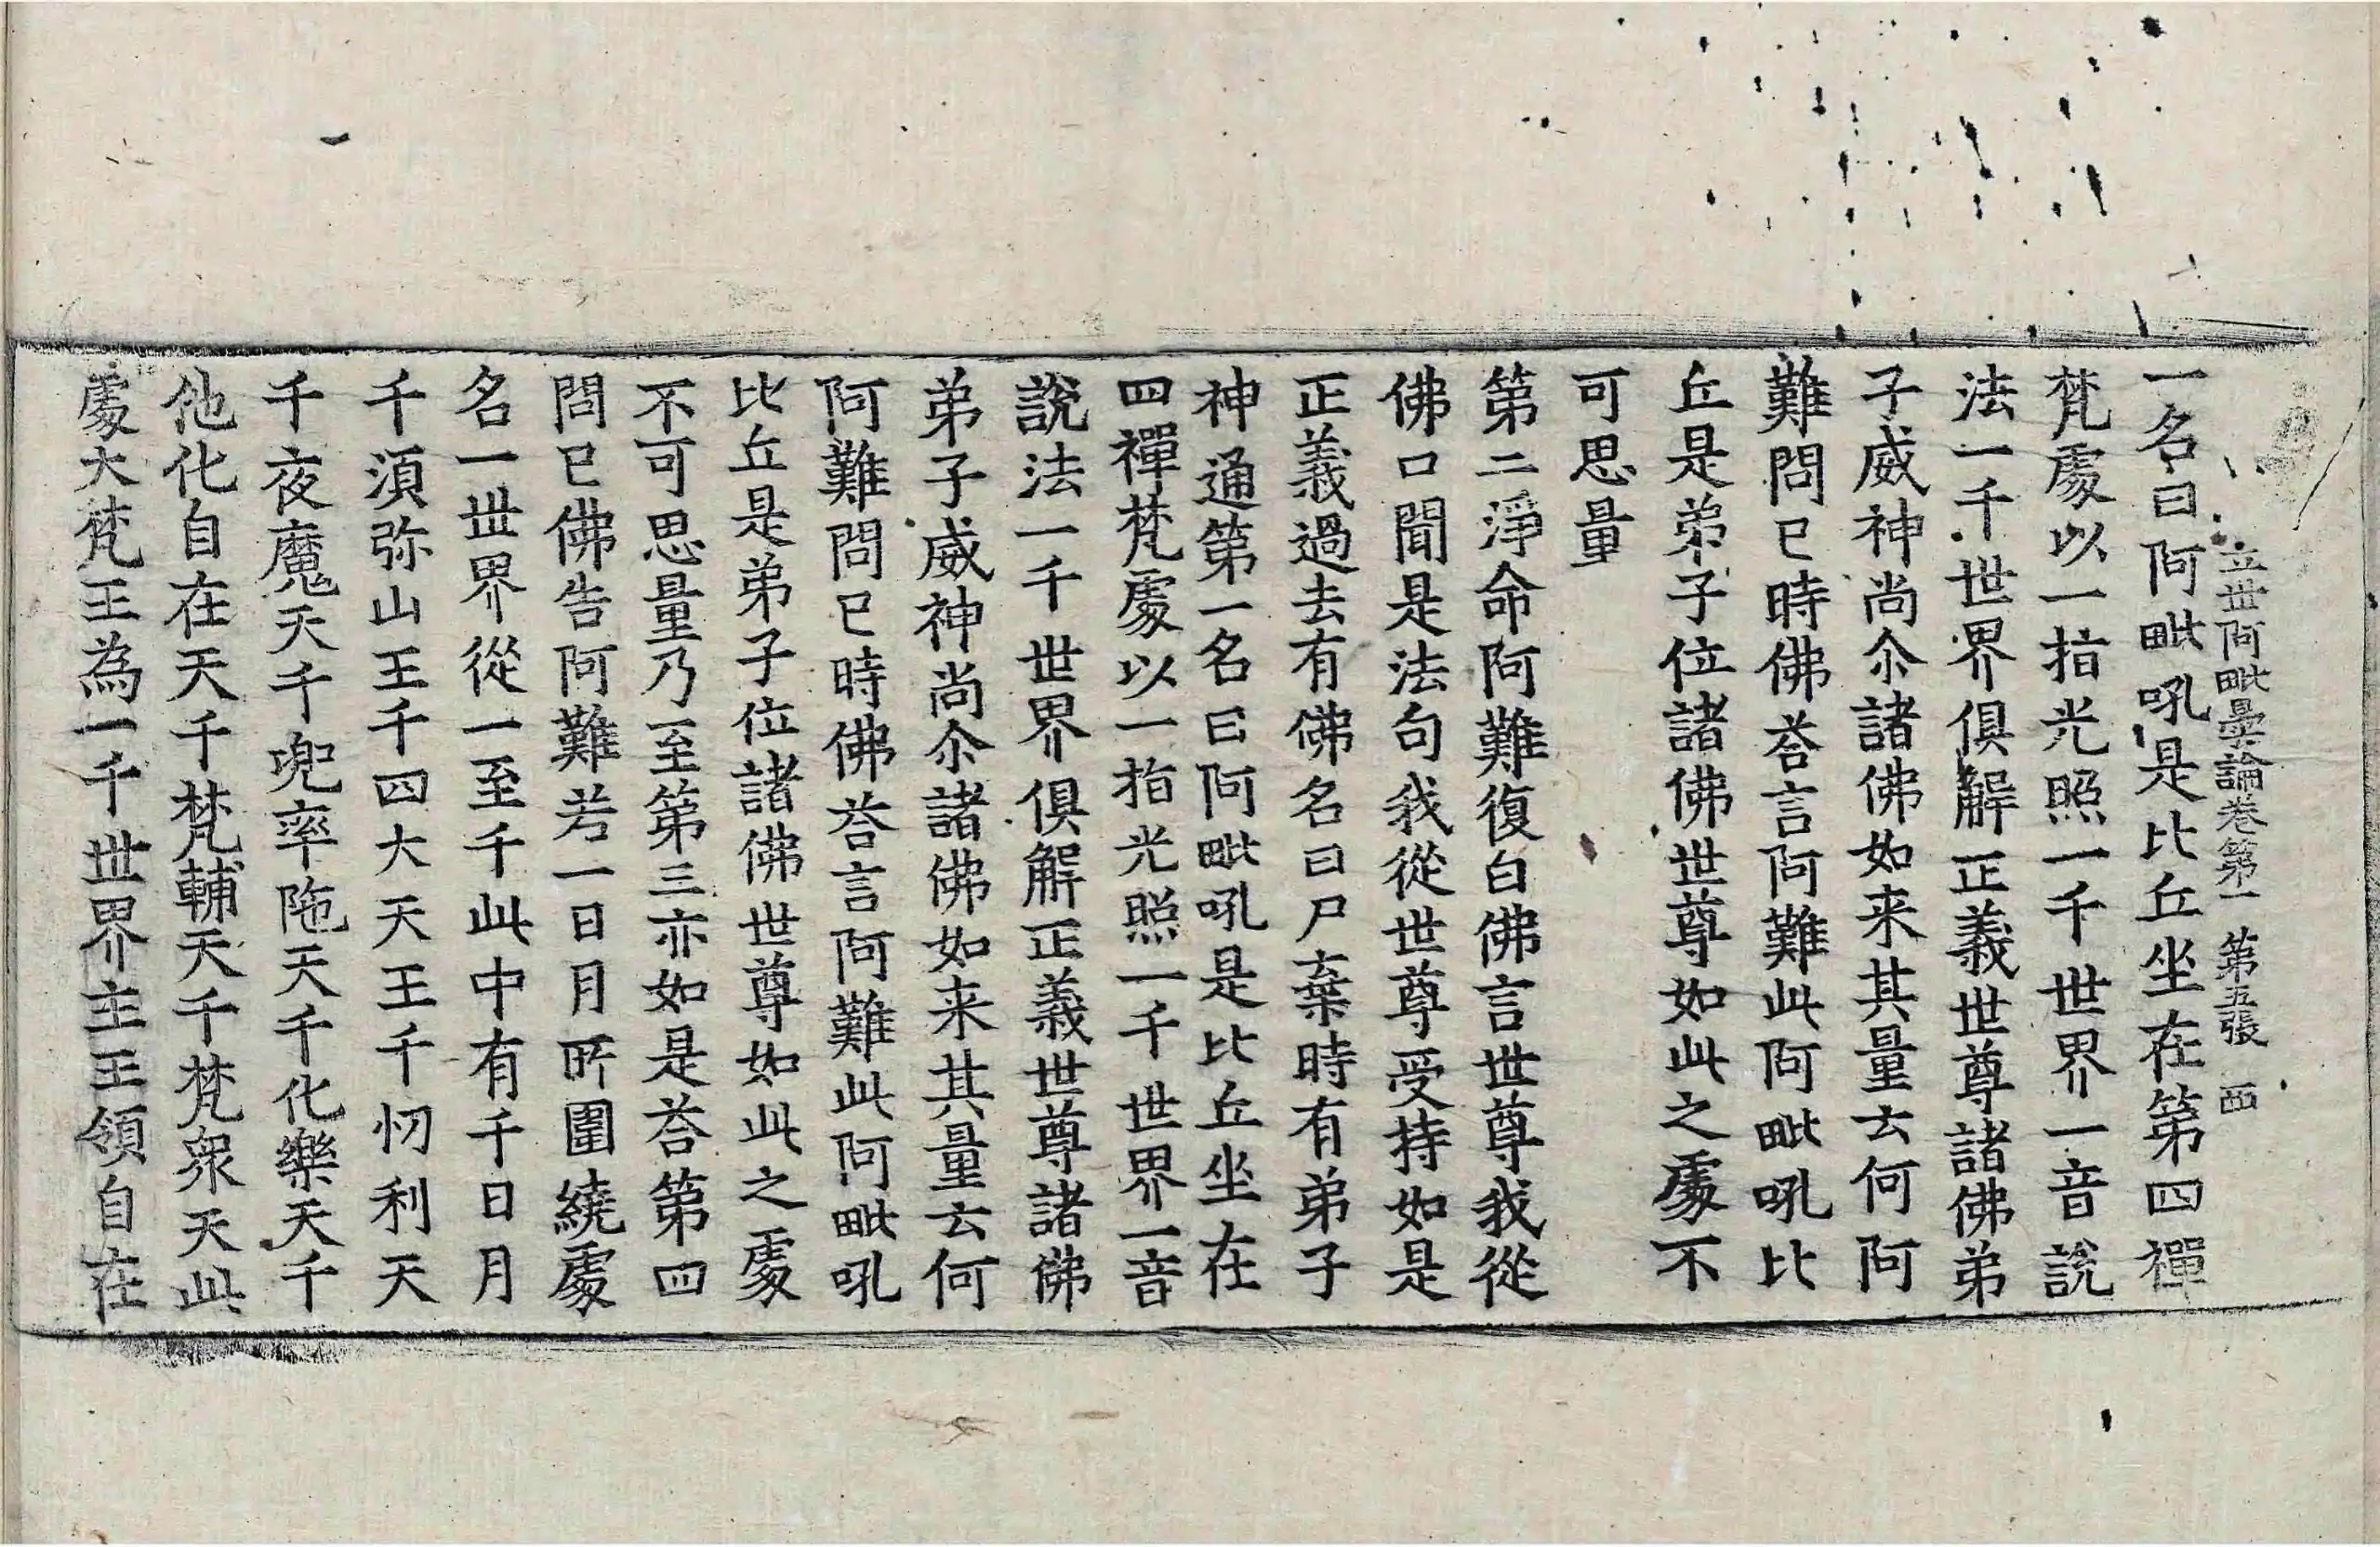 立世阿毗曇論卷第一 第五張 西
一名曰阿毗吼是比丘坐在第四禪
梵處以一指光照一千世界一音說
法一千世界俱解正義世尊諸佛弟
子威神尚尒諸佛如来其量云何阿
難問已時佛荅言阿難此阿毗吼比
丘是弟子位諸佛世尊如此之處不
可思量
第二淨命阿難復白佛言世尊我從
佛口聞是法句我從世尊受持如是
正義過去有佛名曰尸棄時有弟子
神通第一名曰阿毗吼是比丘坐在
四禪梵處以一指光照一千世界一音
說法一千世界俱解正義世尊諸佛
弟子威神尚尒諸佛如来其量云何
阿難問已時佛荅言阿難此阿毗吼
比丘是弟子位諸佛世尊如此之處
不可思量乃至第三亦如是荅第四
問已佛告阿難若一日月所圍繞處
名一世界從一至千此中有千日月
千湏弥山王千四大天王千忉利天
千夜魔天千兜率陁天千化樂天千
他化自在天千梵輔天千梵衆天此
處大梵王為一千世界主王領自在